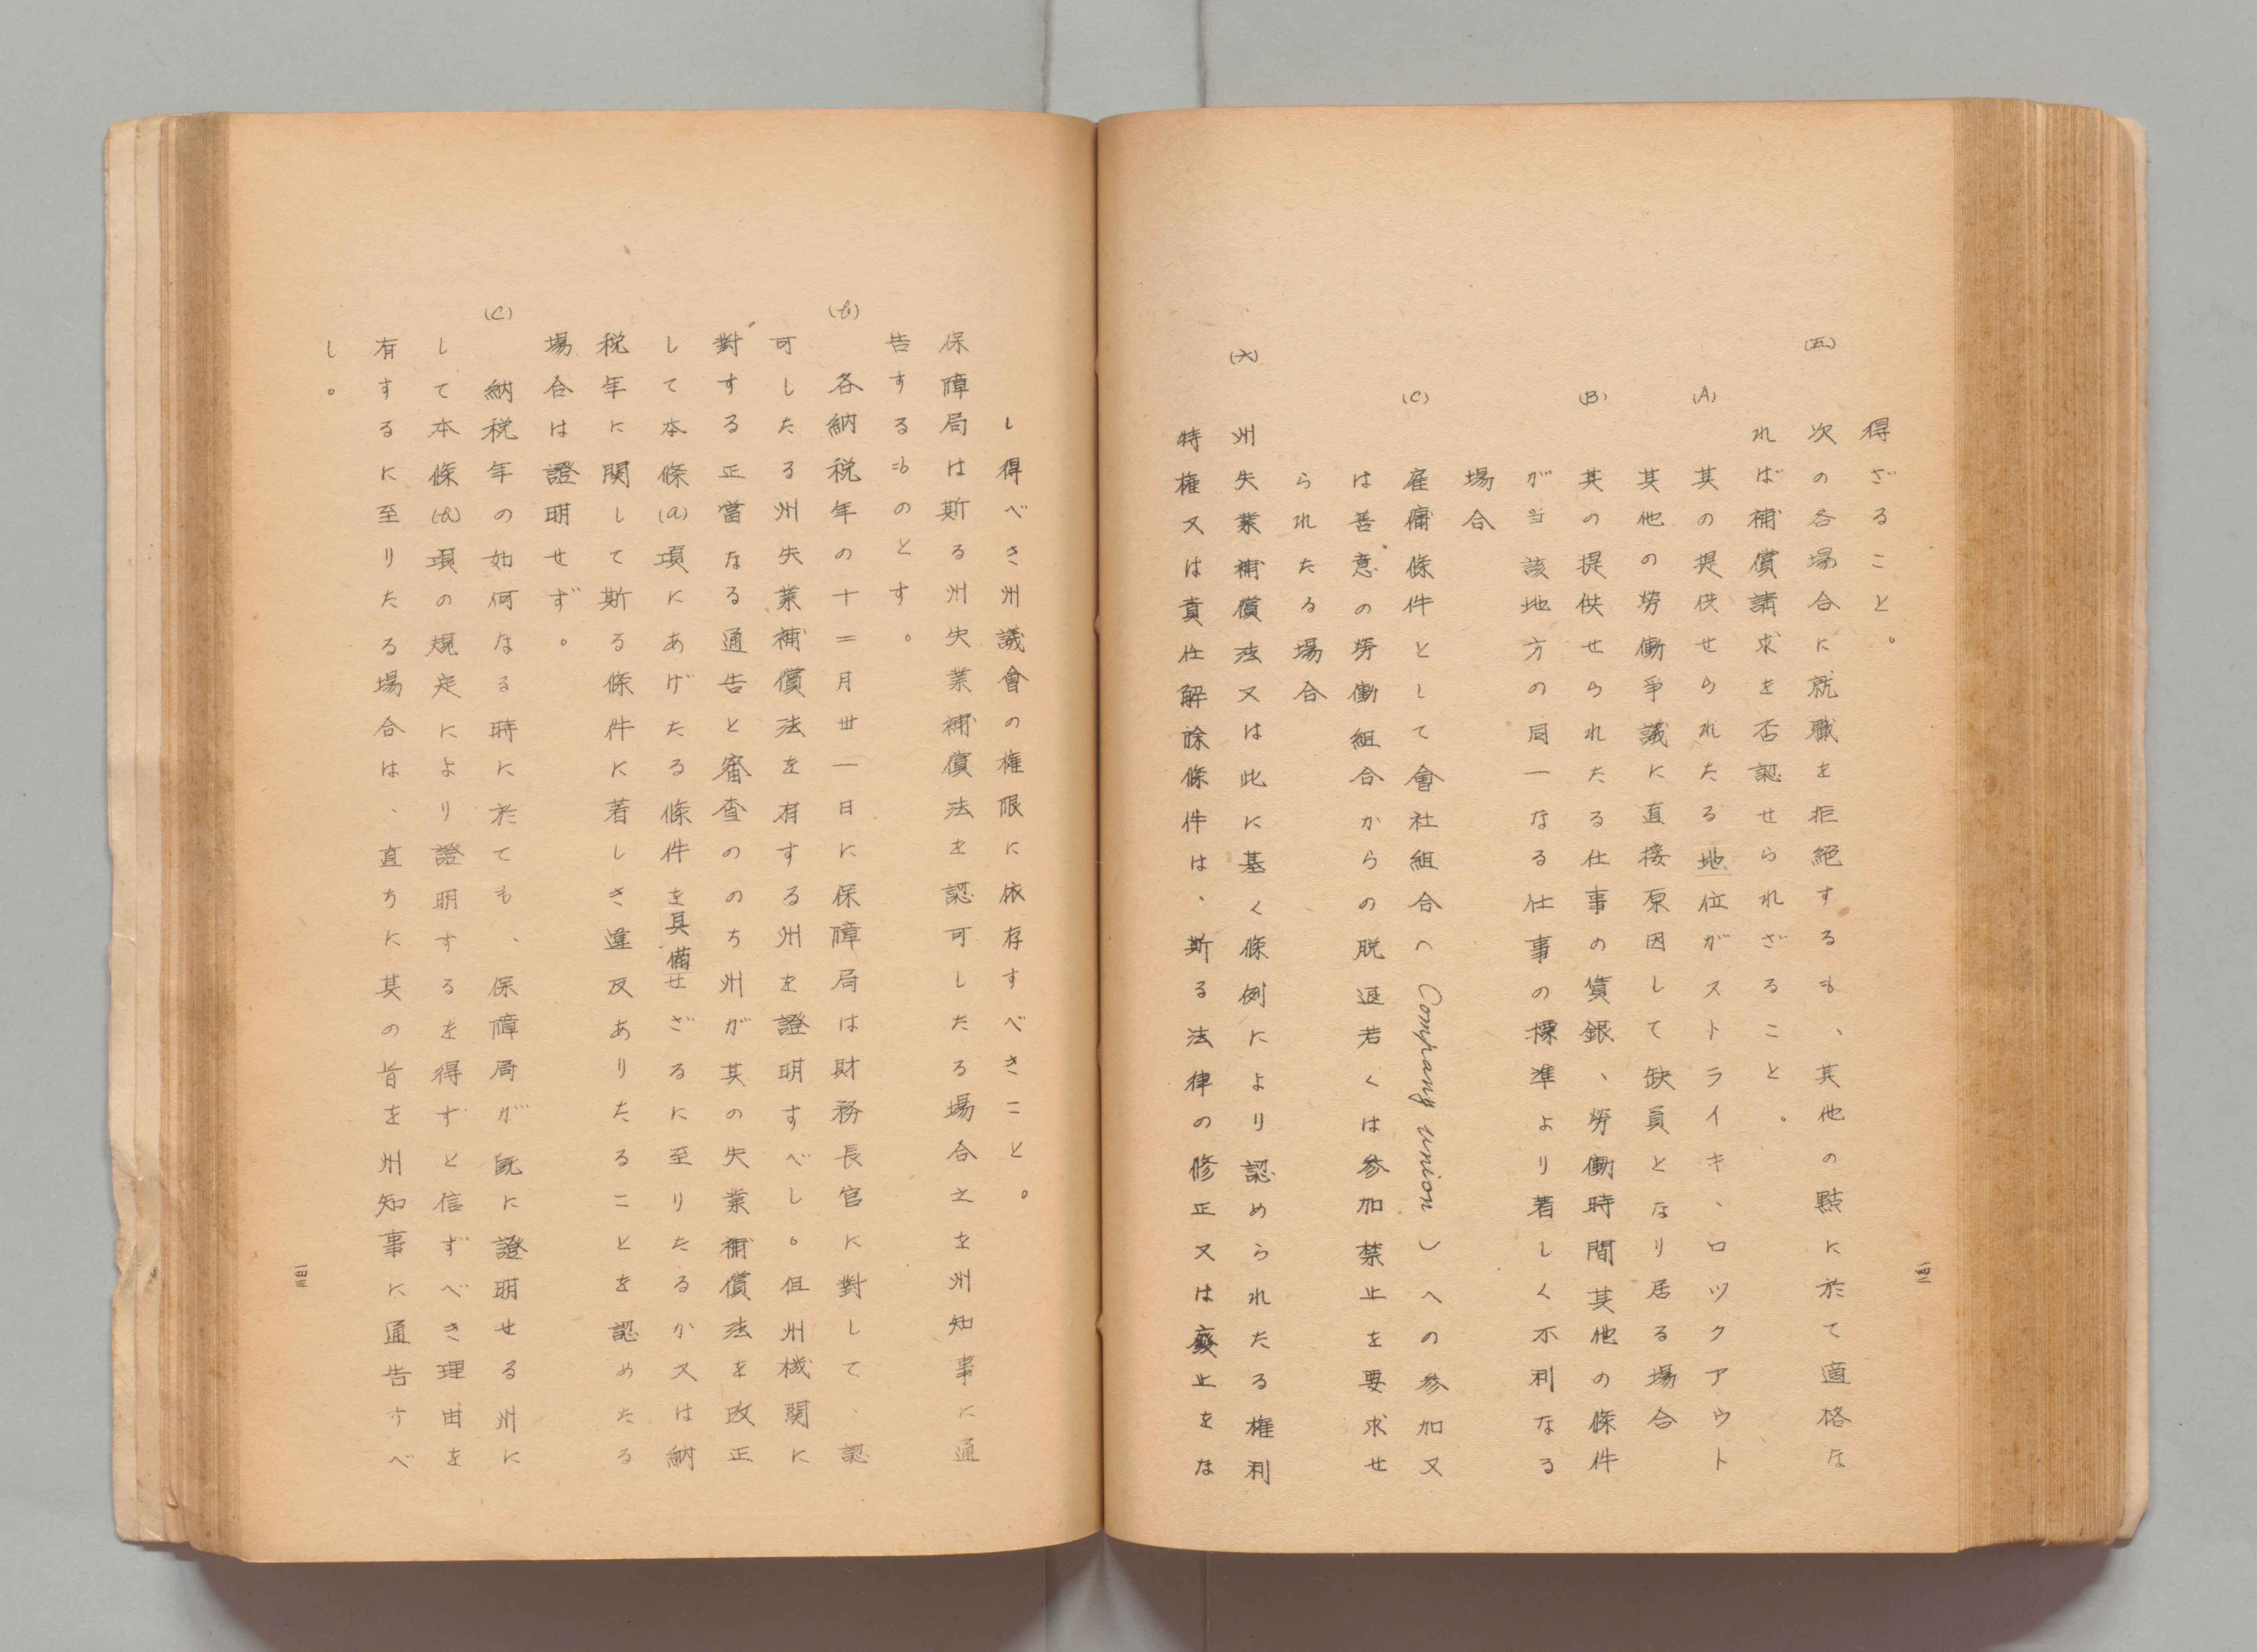 得ざること。
(五) 次の各場合に就職を拒絶するも、其他の點に於て適格な
れば補償請求を否認せられざること。
(A) 其の提供せられたる地位がストライキ、ロツクアウト
其他の勞働爭議に直接原因して缺員となり居る場合
(B) 其の提供せられたる仕事の賃銀、勞働時間其他の條件
が当該地方の同一なる仕事の標準より著しく不利なる
場合
(C) 雇傭條件として會社組合(Company union)への参加又
は善意の勞働組合からの脱退若くは参加禁止を要求せ
られたる場合
(六) 州失業補償法又は此に基く條例により認められたる權利
特權又は責任解除條件は、斯る法律の修正又は廢止をな
一四二
し得べき州議會の權限に依存すべきこと。
保障局は斯る州失業補償法を認可したる場合之を州知事に通
告するものとす。
(b) 各納税年の十二月卅一日に保障局は財務長官に對して、認
可したる州失業補償法を有する州を證明すべし。但州機関に
對する正當なる通告と審査ののち州が其の失業補償法を改正
して本條(a)項にあげたる條件を具備せざるに至りたるか又は納
税年に関して斯る條件に著しき違反ありたることを認めたる
場合は證明せず。
(c) 納税年の如何なる時に於ても、保障局が既に證明せる州に
して本條(b)項の規定により證明するを得ずと信ずべき理由を
有するに至りたる場合は、直ちに其の旨を州知事に通告すべ
し。
一四三